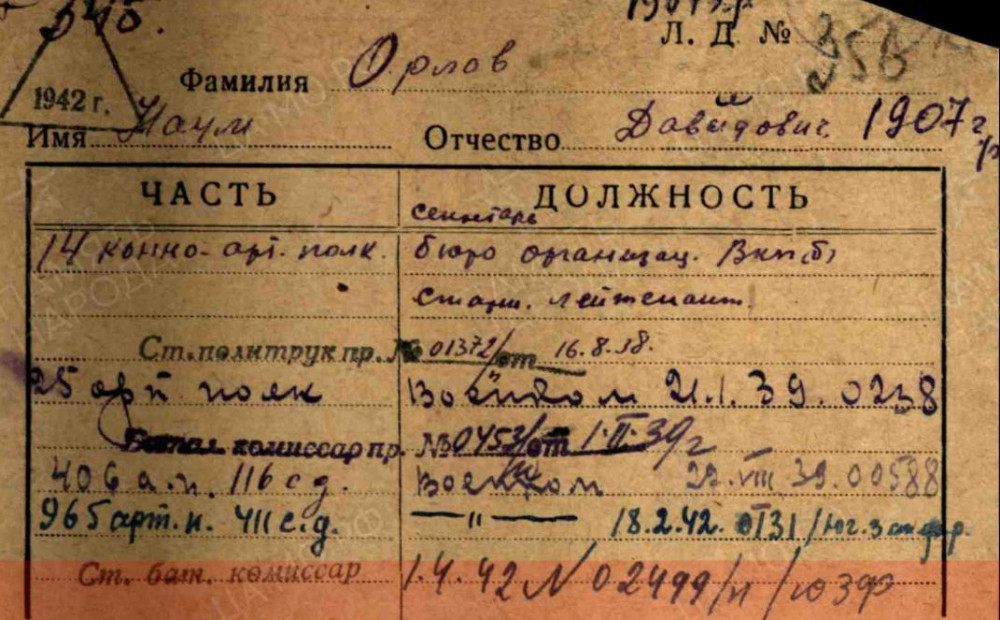 1942 г.
Л. Д. №
Фамилия Орлов
Имя Наум Отчество Давидович 1907 г.
ЧАСТЬ ДОЛЖНОСТЬ
секретарь
14 конно-арт. полк. бюро организац. ВКП(б)
старш. лейтенант.
Ст. политрук пр. № 01372/от 16.8.38.
25 арт полк Военком 21.1.39. 0238
Батал. комиссар пр. № 0453/от 1.II.39 г
406 а.п. 116 с д. Военком 22.VIII 39.00588
965 арт. п. 411 с.д. —— " —— 18.2.42. 0131/Юг. зап фр.
Ст. бат. комиссар 1.4.42 N 02499/п/юзф